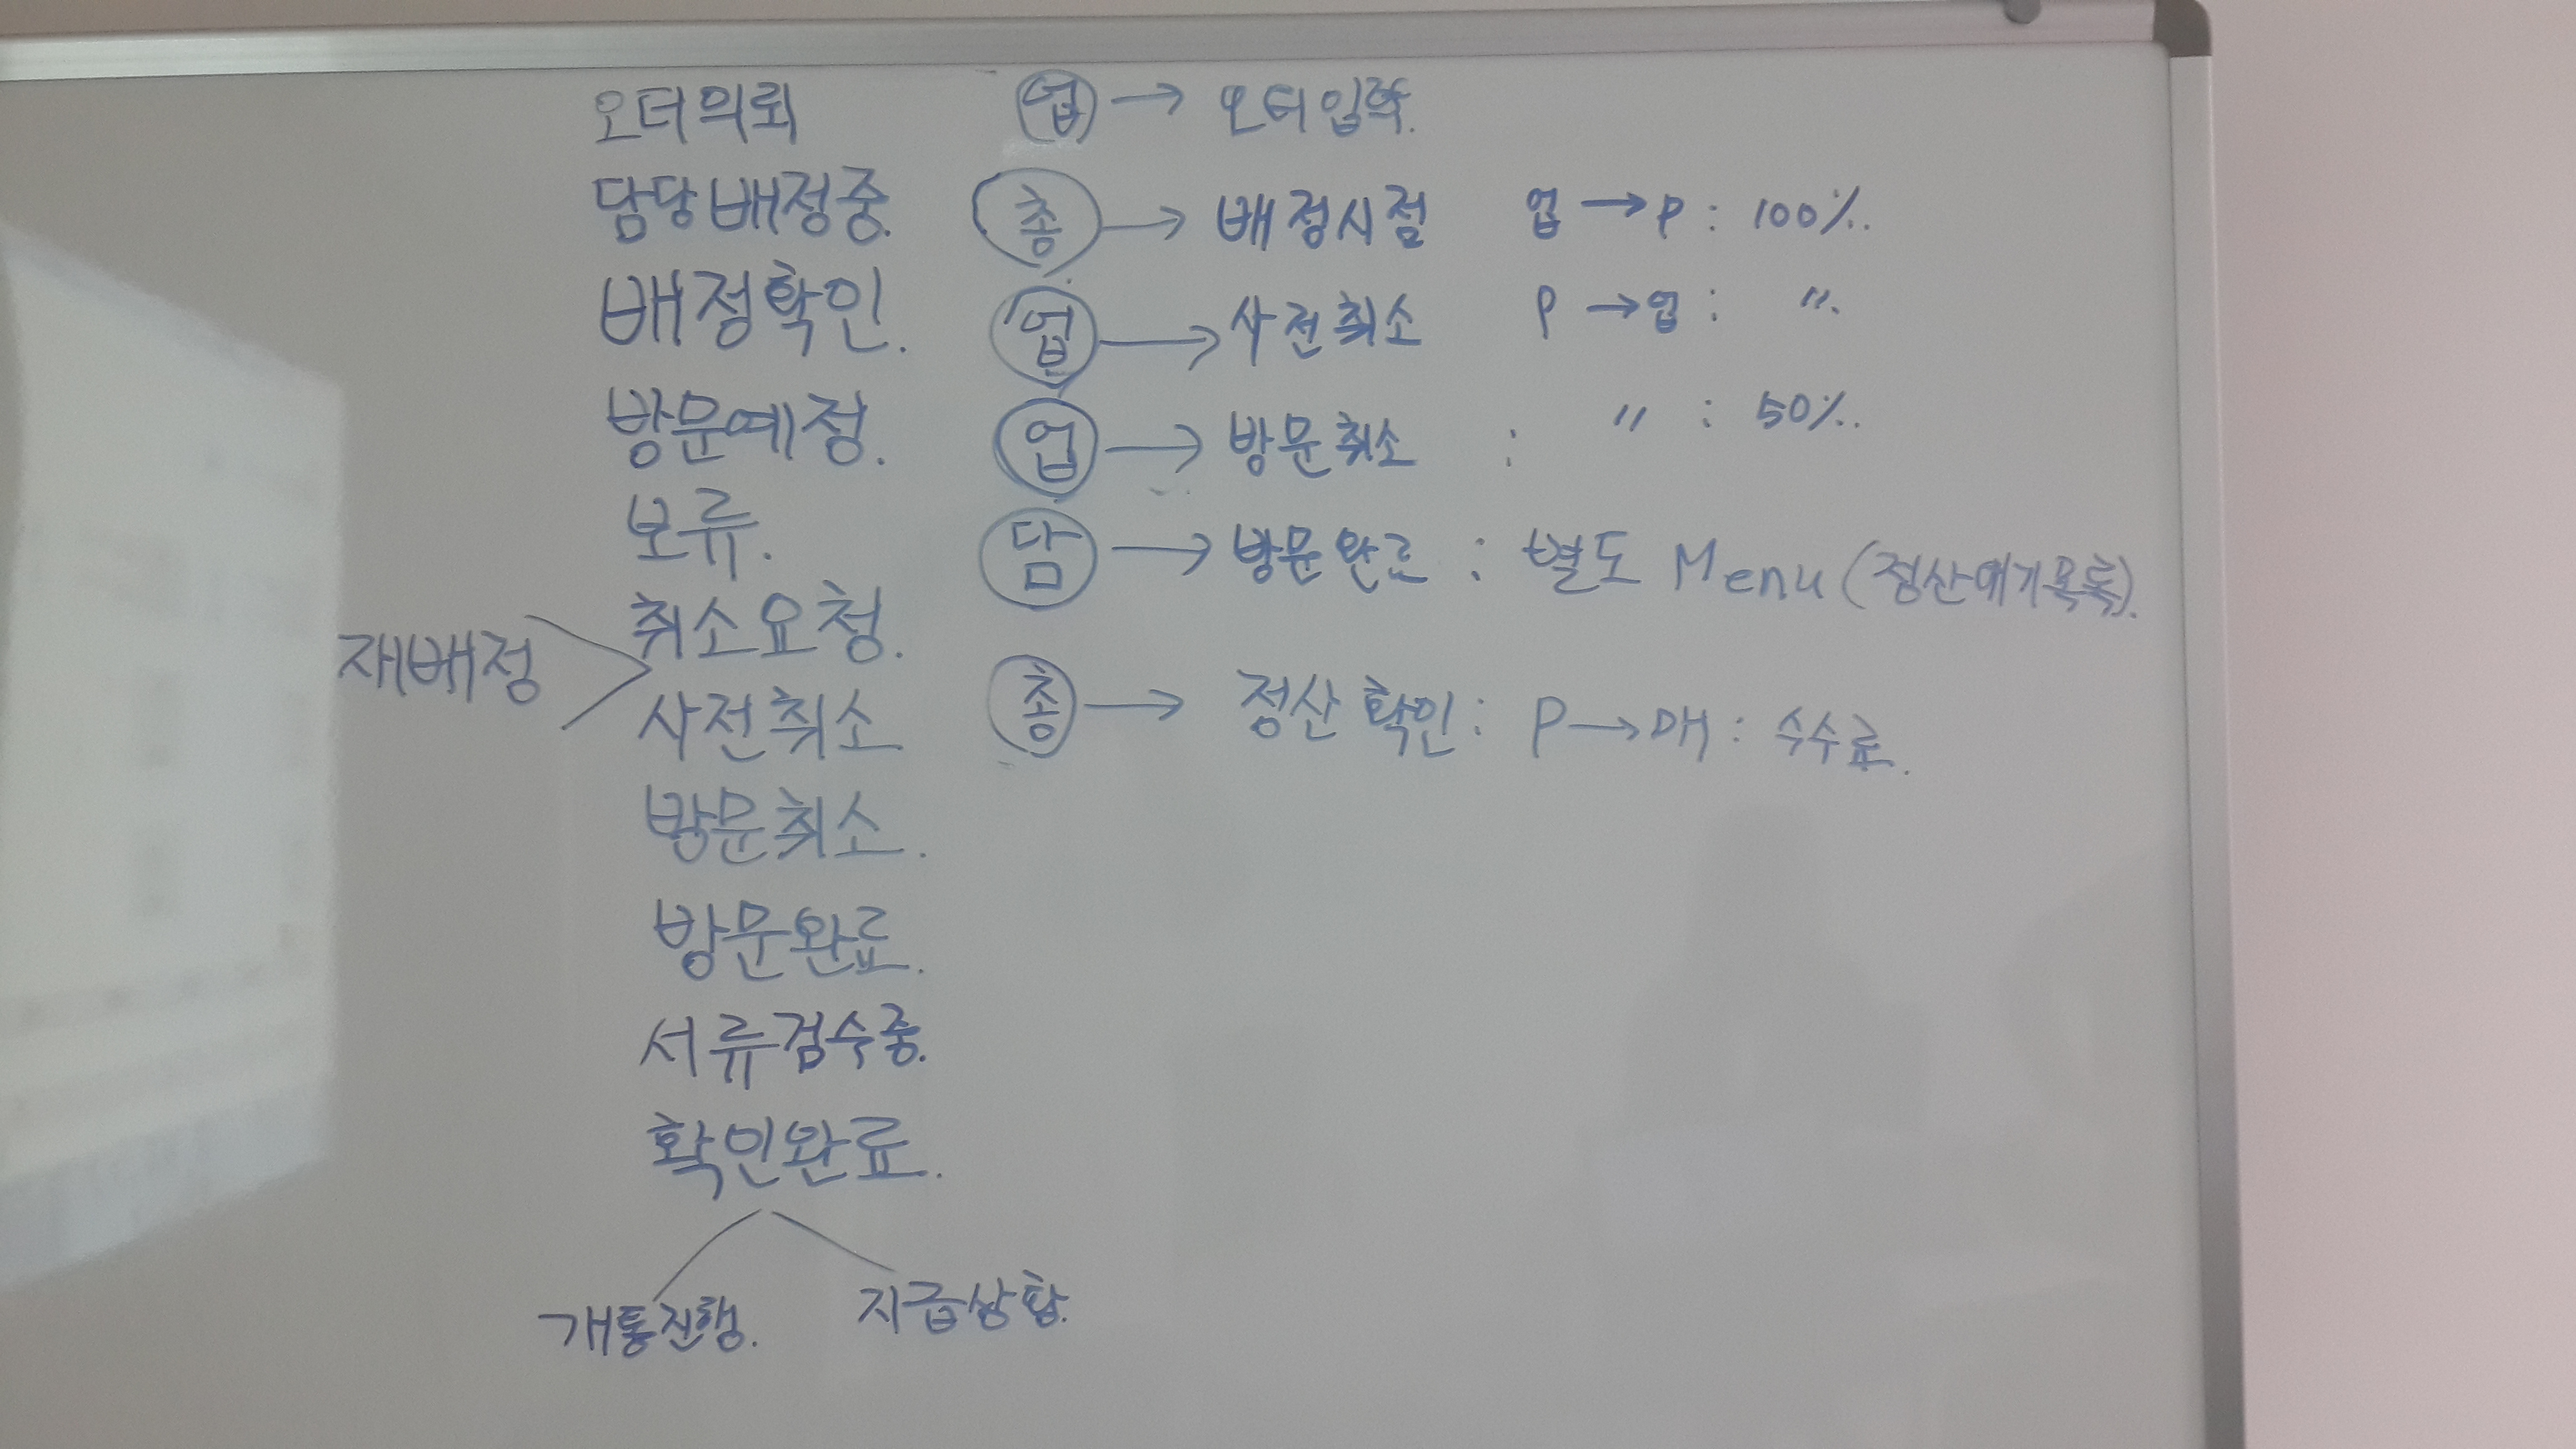 오더의뢰 업 → 오더입력.
담당배정중. 총 → 배정시점 업 → P : 100%.
배정확인. 업 → 사전취소 P → 업 : 〃.
방문예정. 업 → 방문취소 : 〃 : 50%.
보류. 담 → 방문완료 : 별도 Menu (정산대기목록).
취소요청.
재배정
사전취소 총 → 정산확인 : P → 매 : 수수료.
방문취소.
방문완료.
서류검수중.
확인완료.
개통진행. 지급상황.